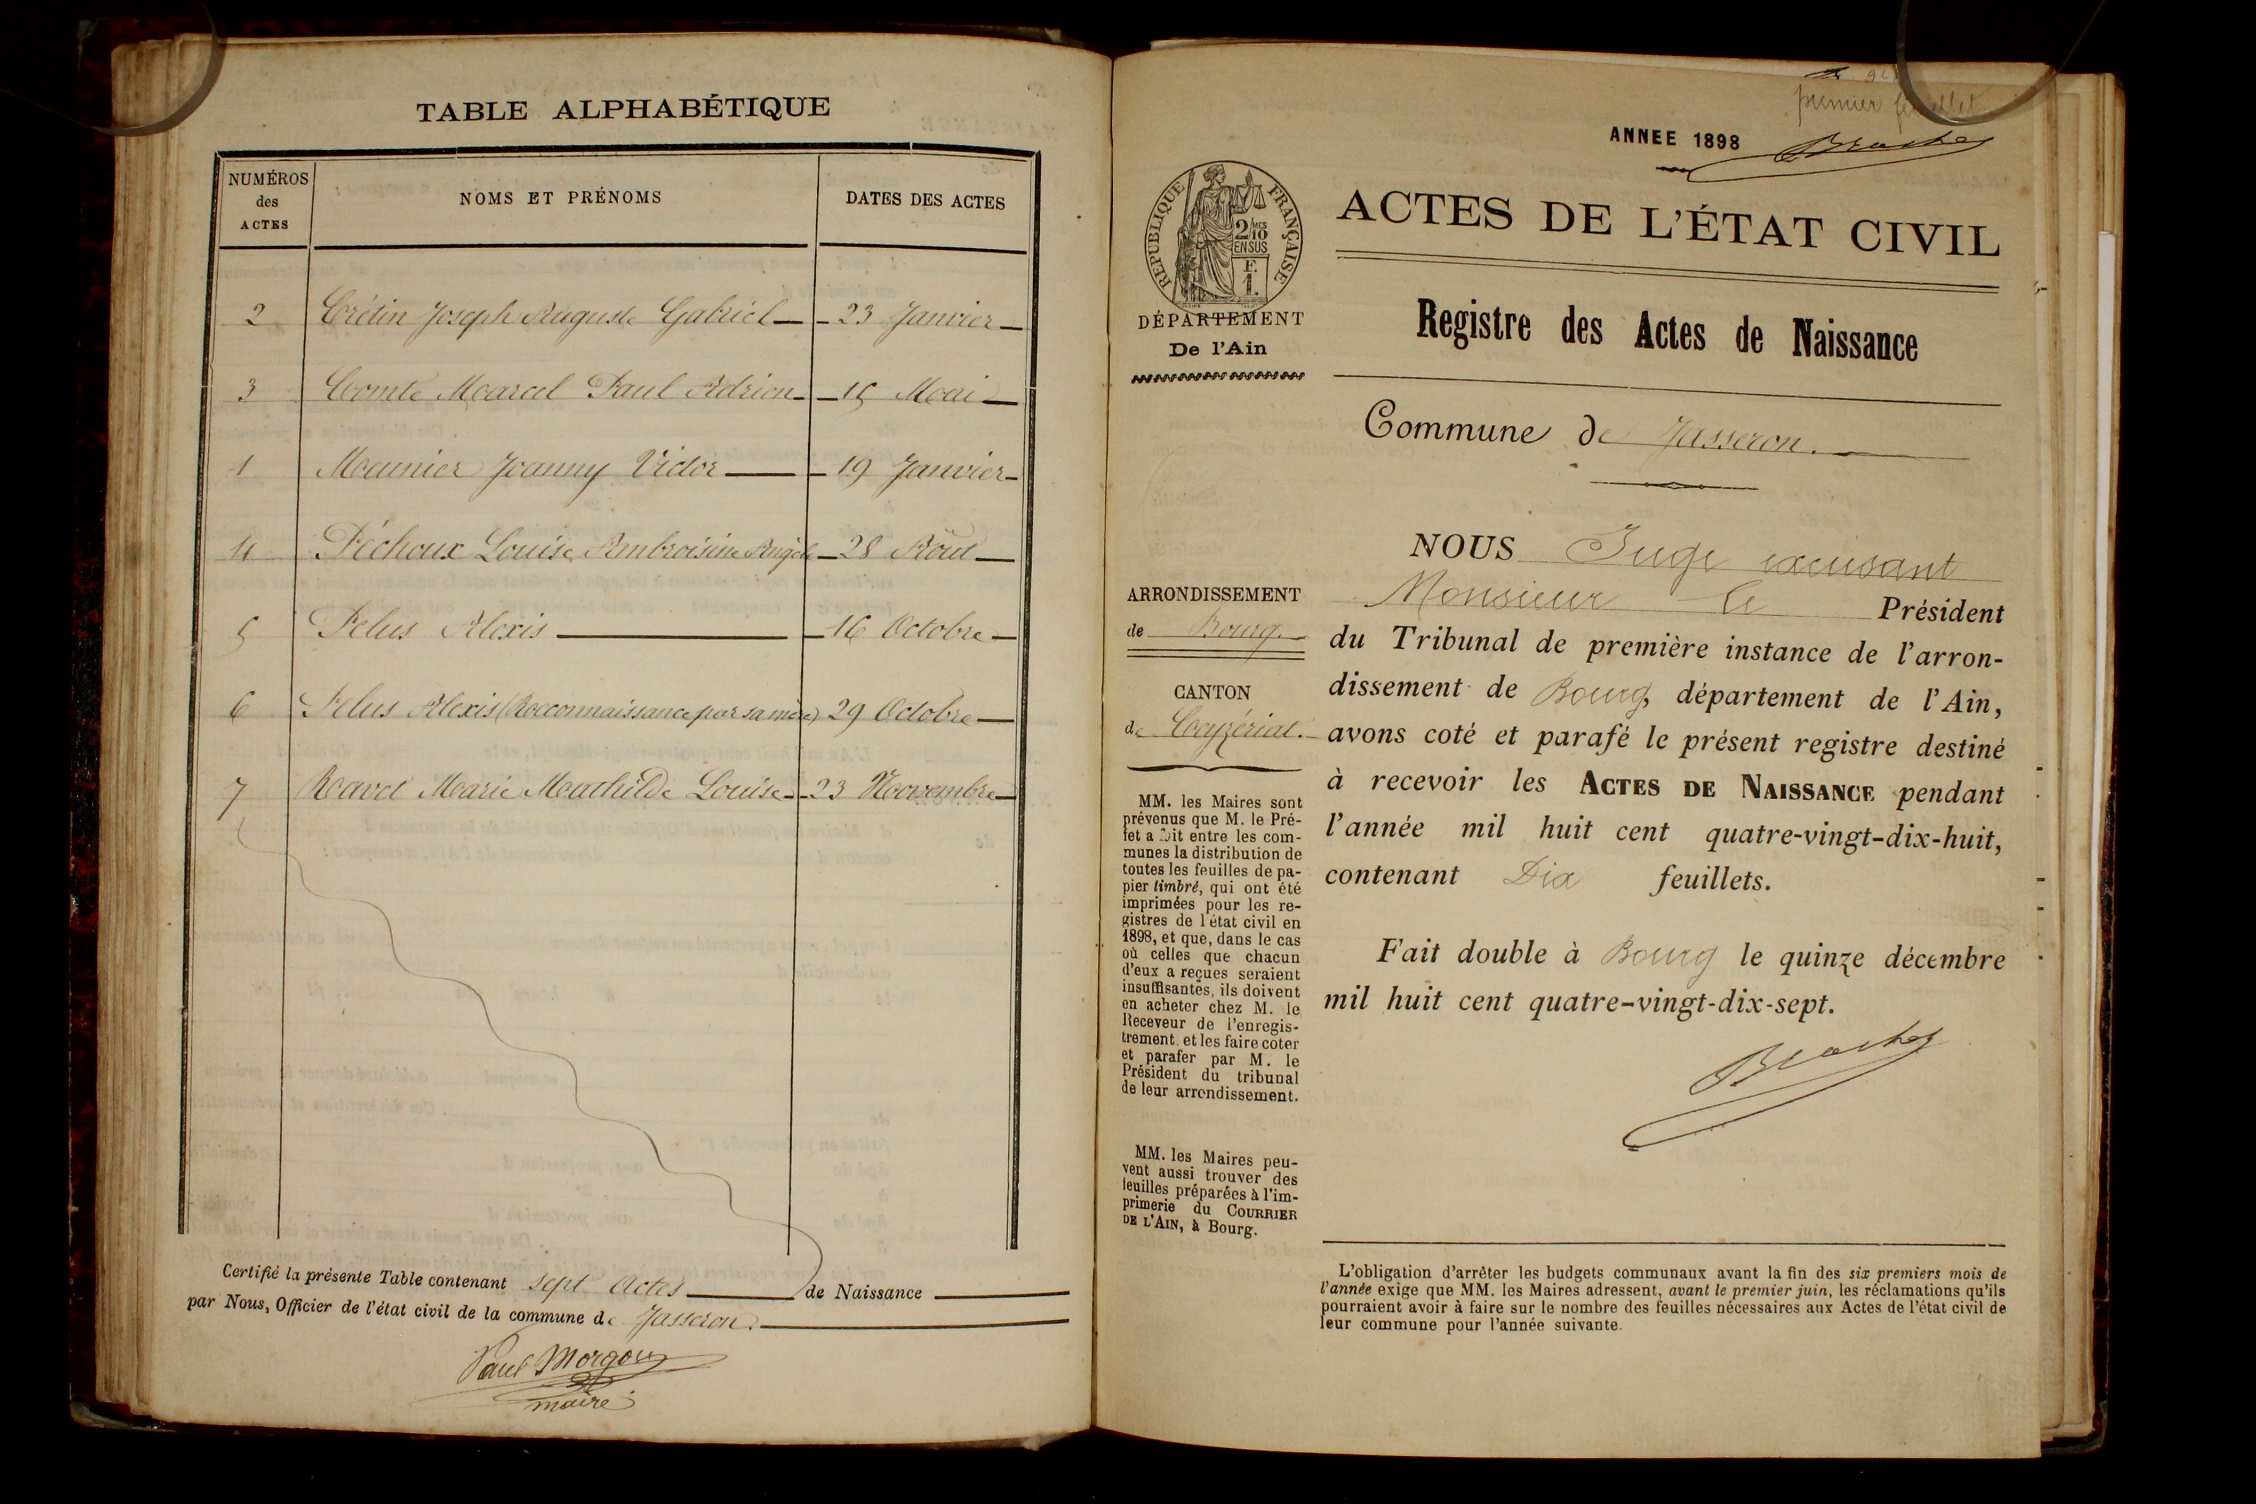 TABLE ALPHABÉTIQUE
NUMÉROS
des
ACTES
NOMS ET PRÉNOMS
DATES DES ACTES
2 Crétin Joseph Auguste Gabriel 23 Janvier
3 Comte Marcel Paul Adrien 15 Mai
1 Meunier Joanny Victor 19 Janvier
4 Péchoux Louise Ambroisine Angèle 28 Août
5 Pelus Alexis 16 Octobre
6 Pelus Alexis (Reconnaissance par sa mère) 29 Octobre
7 Ravet Marie Mathilde Louise 23 Novembre
Certifié la présente Table contenant sept actes de Naissance
par Nous, Officier de l'état civil de la commune de Jasseron.
Paul Morgon
maire
premier feuillet
ANNEE 1898
RÉPUBLIQUE FRANÇAISE
2/10 MES
EN SUS
F.
1.
DÉPARTEMENT
De l'Ain
ACTES DE L'ÉTAT CIVIL
Registre des Actes de Naissance
Commune de Jasseron.
ARRONDISSEMENT
de Bourg.
CANTON
de Ceyzériat.
MM. les Maires sont
prévenus que M. le Pré-
fet a fait entre les com-
munes la distribution de
toutes les feuilles de pa-
pier timbré, qui ont été
imprimées pour les re-
gistres de l'état civil en
1898, et que, dans le cas
où celles que chacun
d'eux a reçues seraient
insuffisantes, ils doivent
en acheter chez M. le
Receveur de l'enregis-
trement et les faire coter
et parafer par M. le
Président du tribunal
de leur arrondissement.
MM. les Maires peu-
vent aussi trouver des
feuilles préparées à l'im-
primerie du COURRIER
DE L'AIN, à Bourg.
NOUS Juge excusant
Monsieur le Président
du Tribunal de première instance de l'arron-
dissement de Bourg, département de l'Ain,
avons coté et parafé le présent registre destiné
à recevoir les ACTES DE NAISSANCE pendant
l'année mil huit cent quatre-vingt-dix-huit,
contenant Dix feuillets.
Fait double à Bourg le quinze décembre
mil huit cent quatre-vingt-dix-sept.
L'obligation d'arrêter les budgets communaux avant la fin des six premiers mois de
l'année exige que MM. les Maires adressent, avant le premier juin, les réclamations qu'ils
pourraient avoir à faire sur le nombre des feuilles nécessaires aux Actes de l'état civil de
leur commune pour l'année suivante.